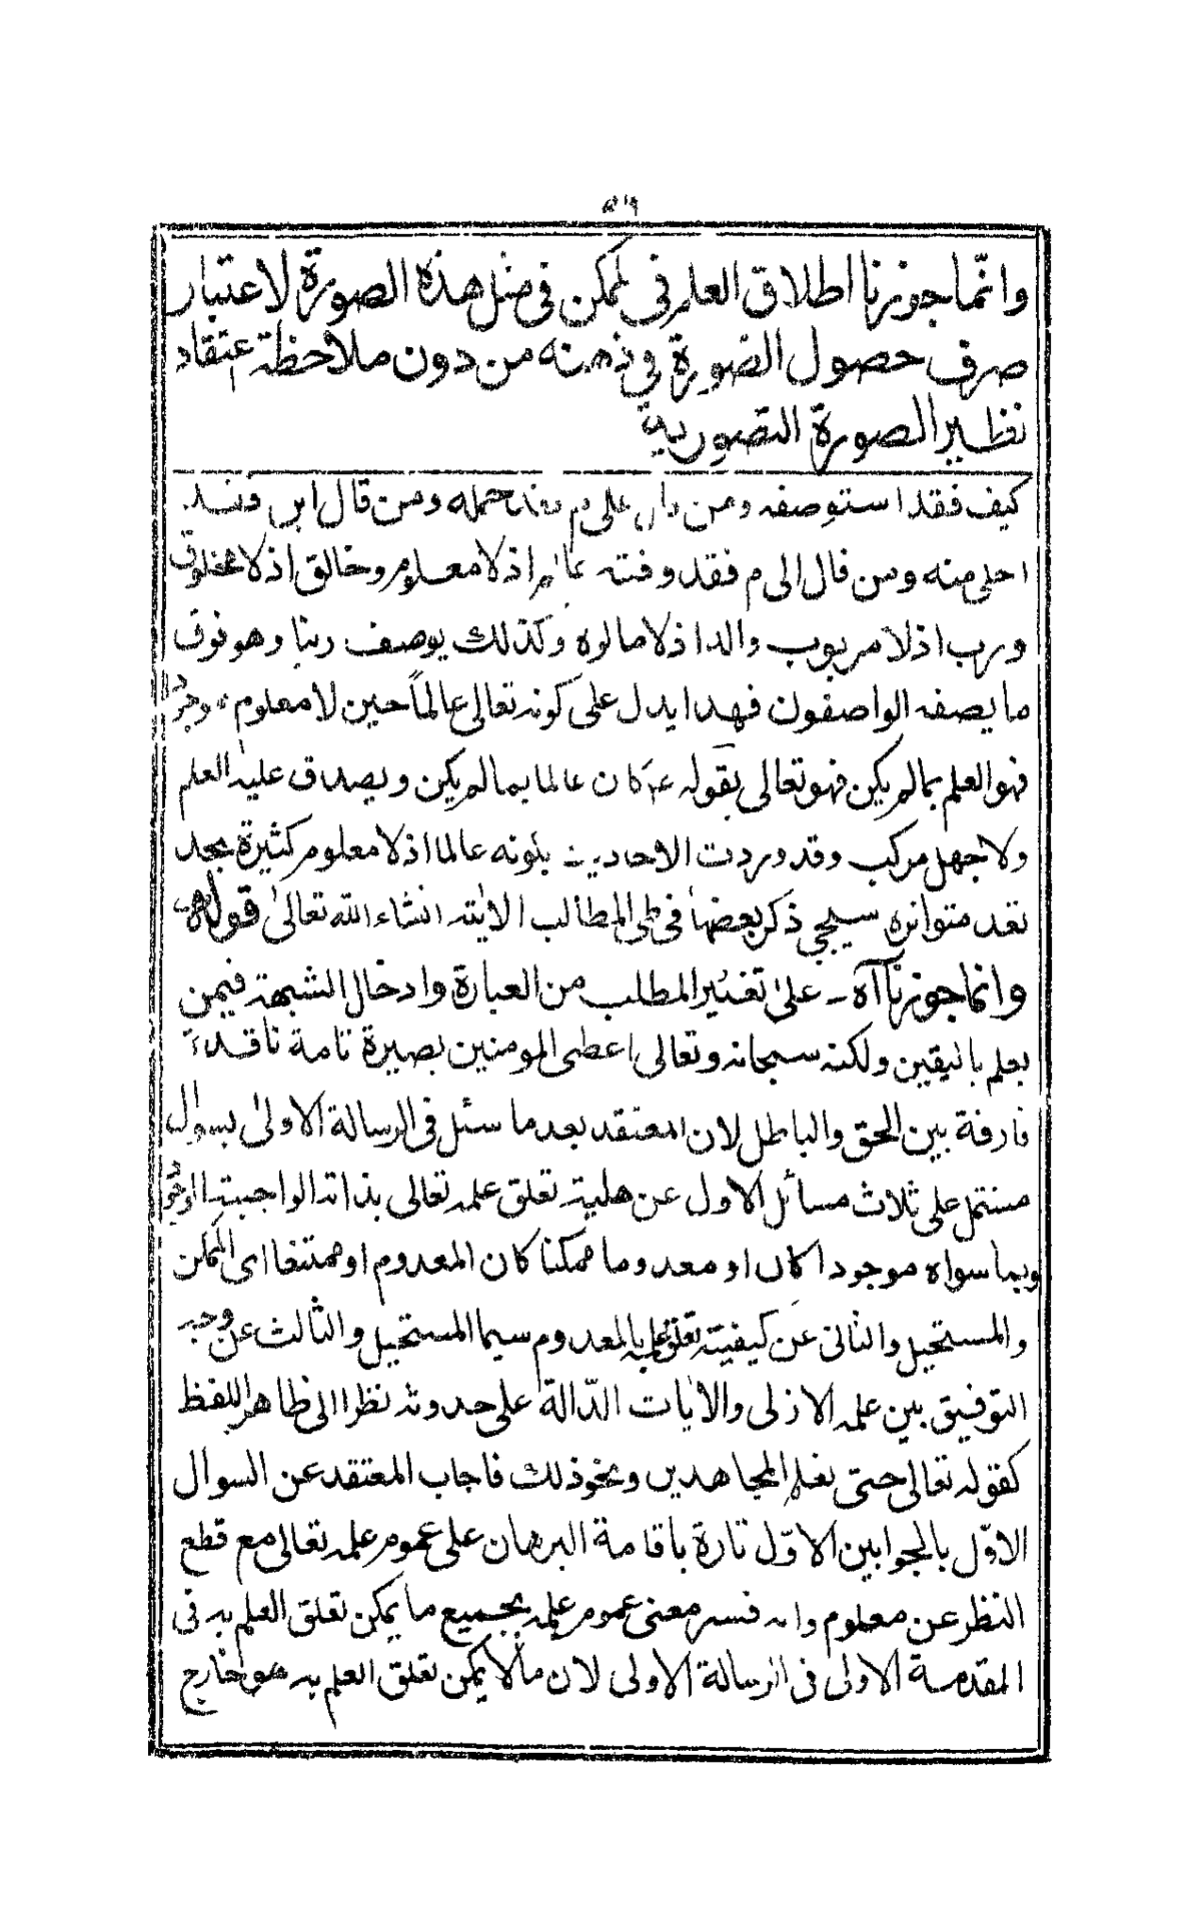 وانّما جوزنا اطلاق العلم فى لممكن فى مثل هذه الصورة لاعتبار
صرف حصول الصورة فى ذهنه من دون ملاحظة اعتقاد
نظير الصورة التصورية
كيف فقد استوصفه ومن قال على م فقد حمله ومن قال اين فقد
اخلى منه ومن قال الى م فقد وقته عالم اذ لا معلوم وخالق اذ لا مخلوق
ورب اذ لا مربوب واله اذ لا مالوه وكذلك يوصف ربنا وهو فوق
ما يصفه الواصفون فهذا يدل على كونه تعالى عالماً حين لا معلوم
فهو العلم بما لم يكن فهو تعالى بقوله ع كان عالما بما لم يكن ويصدق عليه العلم
ولا جهل مركب وقد وردت الاحاديث بكونه عالما اذ لا معلوم كثيرة بحد
تعد متواتره سيجي ذكر بعضها فى طى المطالب الاٰتيه انشاء الله تعالىٰ قوله
وانما جوزنا آه ـ علىٰ تغيير المطلب من العبارة وادخال الشبهة فيمن
يعلم باليقين ولكنه سبحانه وتعالى اعطى المومنين بصيرة تامة ناقدة
فارقة بين الحق والباطل لان المعتقد بعد ما سئل فى الرسالة الاولىٰ بسوال
مشتمل على ثلاث مسائل الاول عن هلية تعلق علمه تعالى بذاته الواجبة الوجود
وبما سواه موجودا كان او معدوما ممكنا كان المعدوم او ممتنعا اى الممكن
والمستحيل والثانى عن كيفيته تعلق علمه بالمعدوم سيما المستحيل والثالث عن وجه
التوفيق بين علمه الازلى والاٰيات الدّالة على حدوثه نظرا الى ظاهر اللفظ
كقوله تعالى حتى نعلم المجاهدين ونحو ذلك فاجاب المعتقد عن السوال
الاوّل بالجوابين الاوّل تارة باقامة البرهان على عموم علمه تعالى مع قطع
النظر عن معلوم وانه فسر معنى عموم علمه بجميع ما يمكن تعلق العلم به فى
المقدمة الاولى فى الرسالة الاولى لان مالا يمكن تعلق العلم به هو خارج